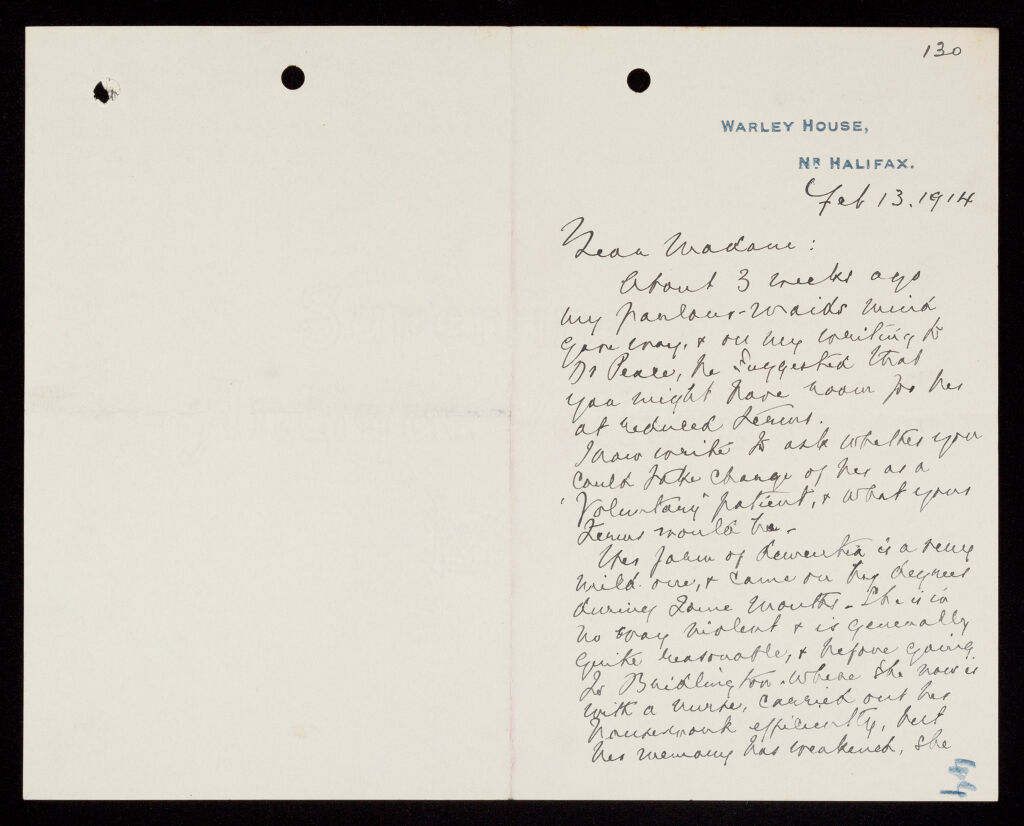 130
WARLEY HOUSE,
NR HALIFAX.
Feb 13. 1914
Dear Madam:
About 3 weeks ago
my parlour-maids mind
gave way, & on my writing to
Dr Peace, he suggested that
you might have room for her
at reduced terms.
I now write to ask whether you
could take charge of her as a
'Voluntary' patient, & what your
terms would be.
Her form of dementia is a very
mild one, & came on by degrees
during some months. She is in
no way violent & is generally
quite reasonable, & before going
to Bridlington where she now is
with a nurse, carried out her
housework efficiently, but
her memory has weakened, she